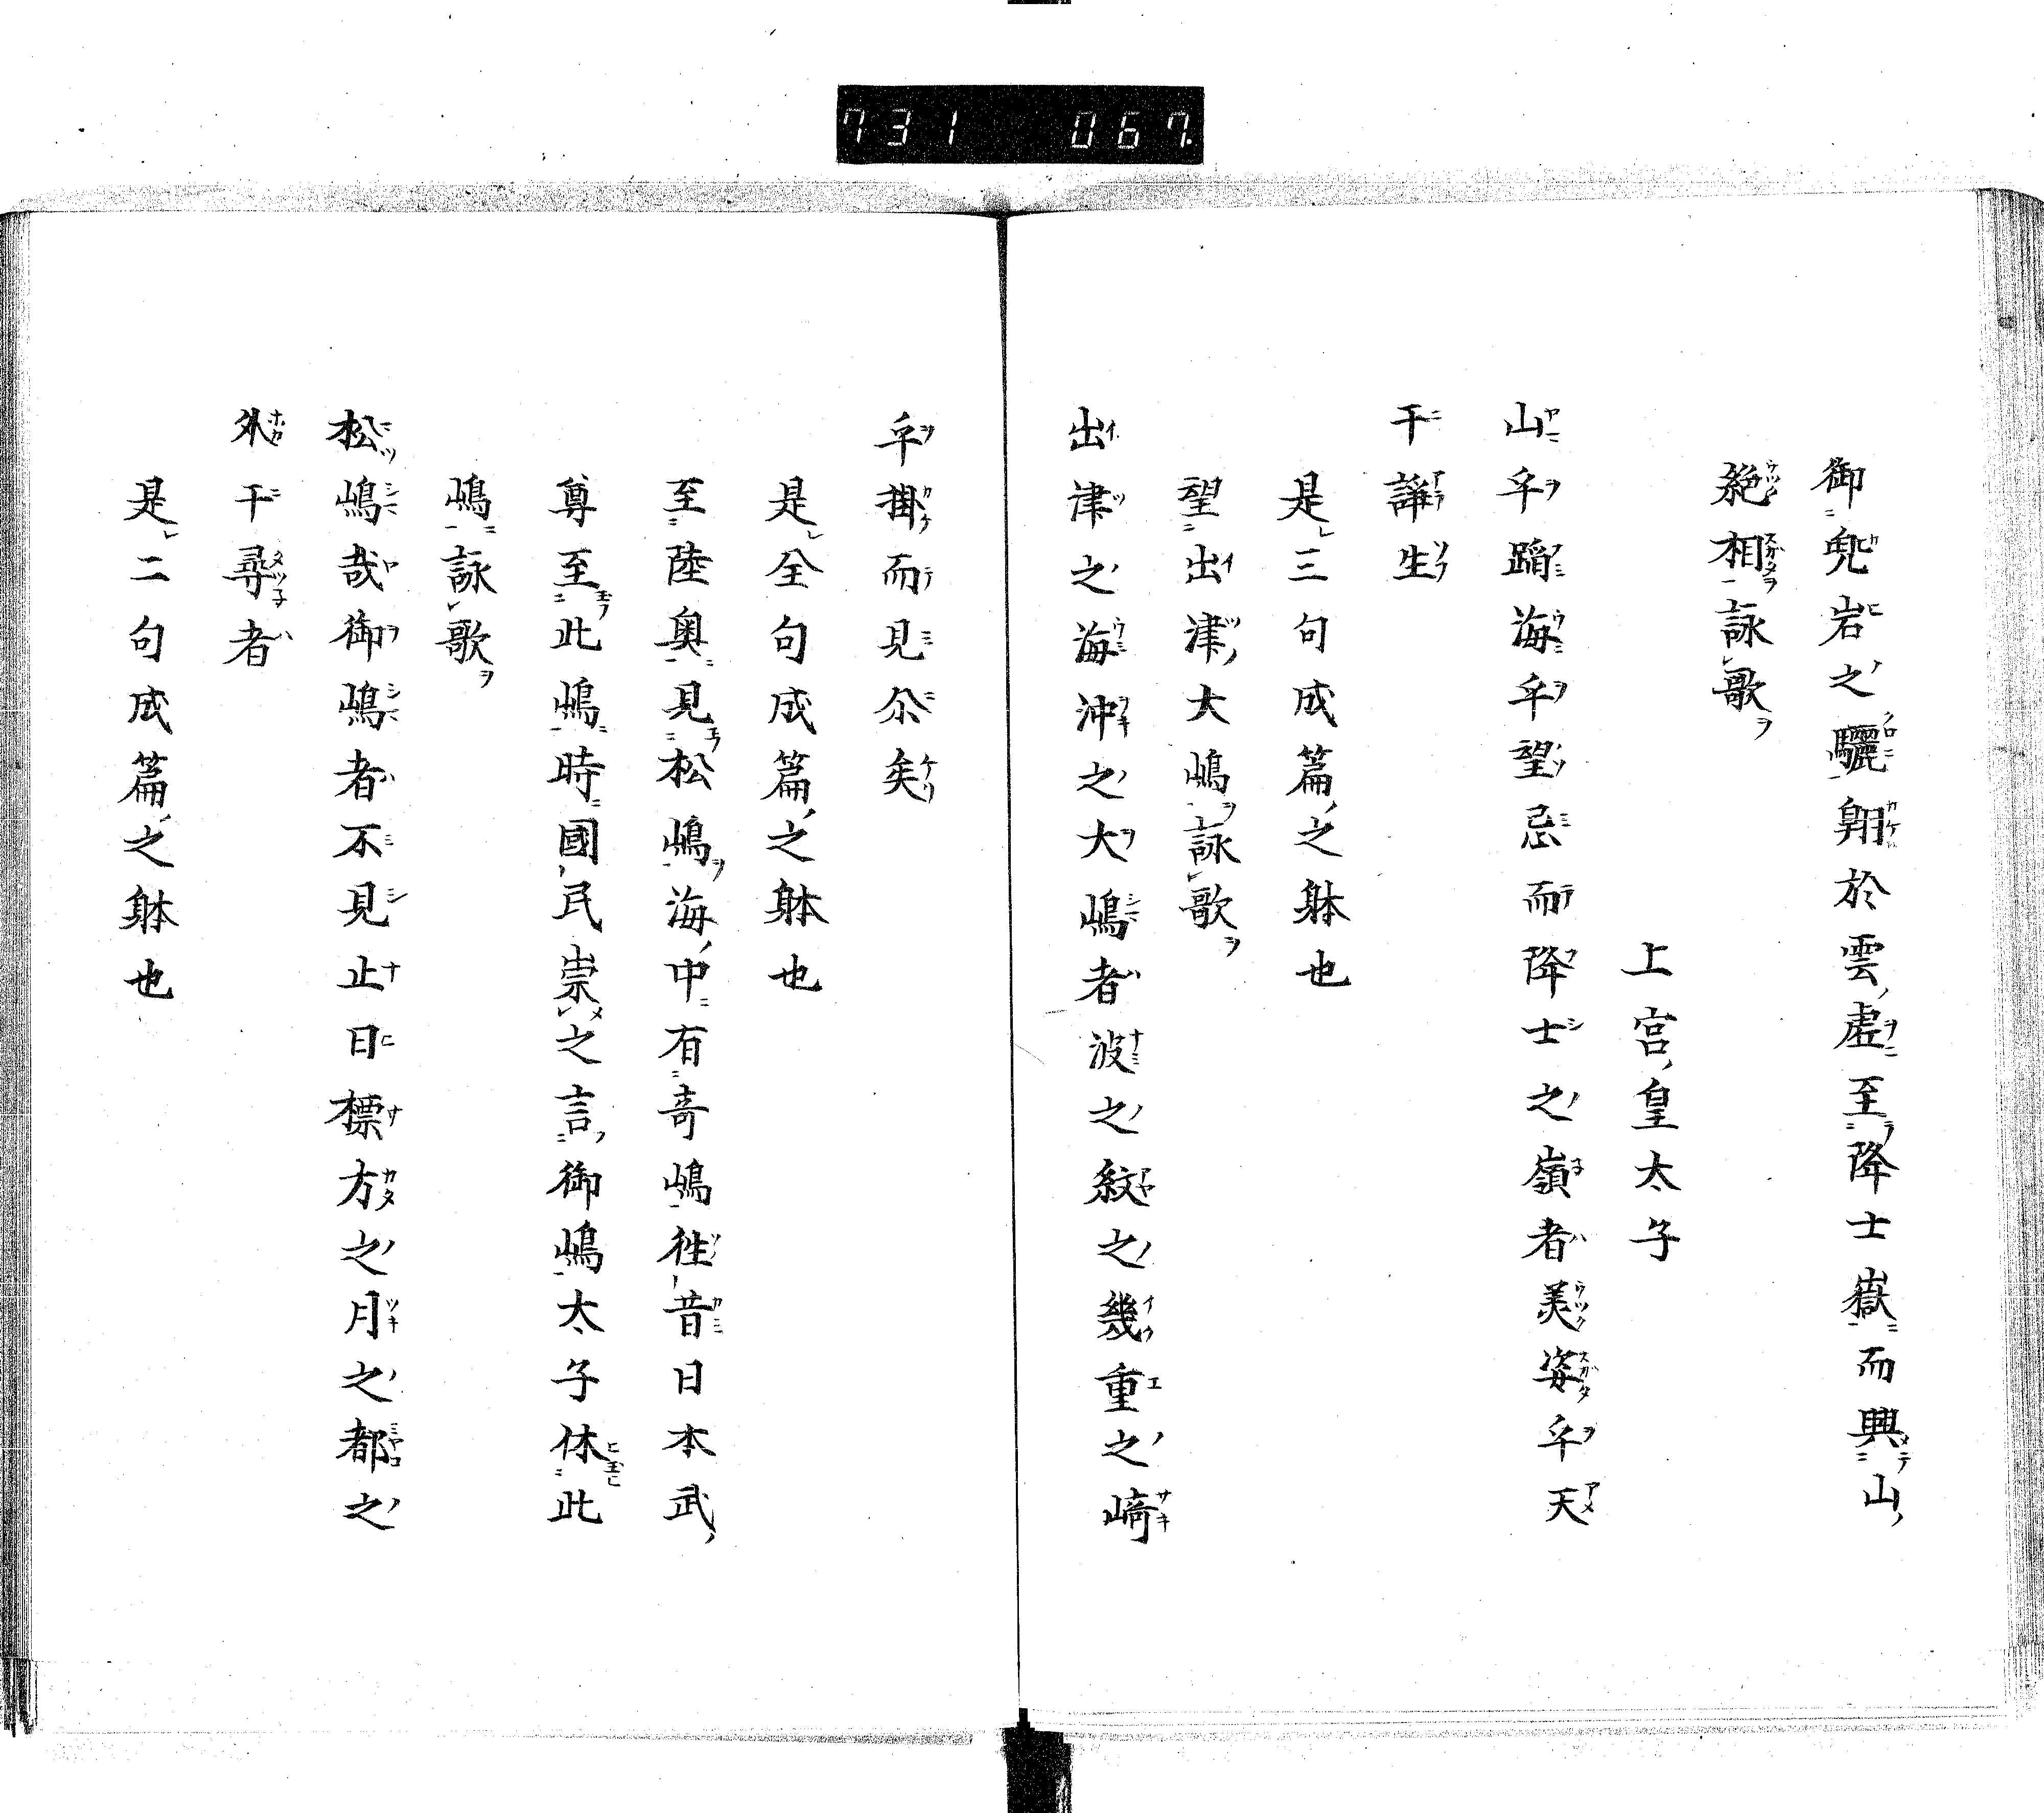 731 067
御兜岩之驪翔於雲虚至降士嶽而興山
絶相詠歌
上宮皇太子
山乎蹈海乎望忌而降士之嶺者美姿乎天
干諍生
是三句成篇之躰也
望出津大嶋詠歌
出津之海沖之大嶋者波之紋之幾重之崎
乎掛而見尒矣
是全句成篇之躰也
至陸奥見松嶋海中有奇嶋徃昔日本武
尊至此嶋時國民崇之言御嶋太子休此
嶋詠歌
松嶋哉御嶋者不見止日標方之月之都之
外干尋者
是二句成篇之躰也